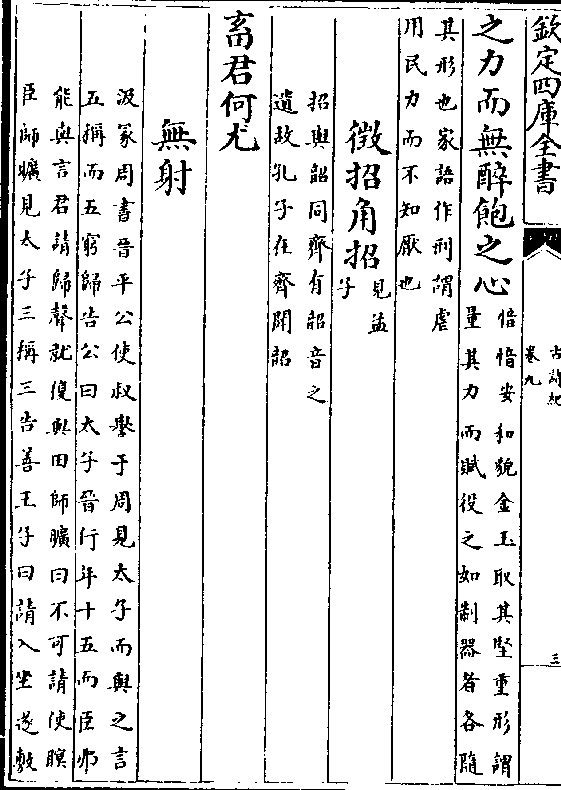 欽定四庫全書
古詩紀
卷九
三
之力而無醉飽之心
愔愔安和貌金玉取其堅重形謂
量其力而賦役之如制器者各隨
其形也家語作刑謂虐
用民力而不知厭也
徵招角招
見孟
子
招與韶同齊有韶音之
遺故孔子在齊聞韶
畜君何尤
無射
汲冢周書晉平公使叔譽于周見太子而與之言
五稱而五窮歸告公曰太子晉行年十五而臣弗
能與言君請歸聲就復與田師曠曰不可請使瞑
臣師曠見太子三稱三告善王子曰請入坐遂敷